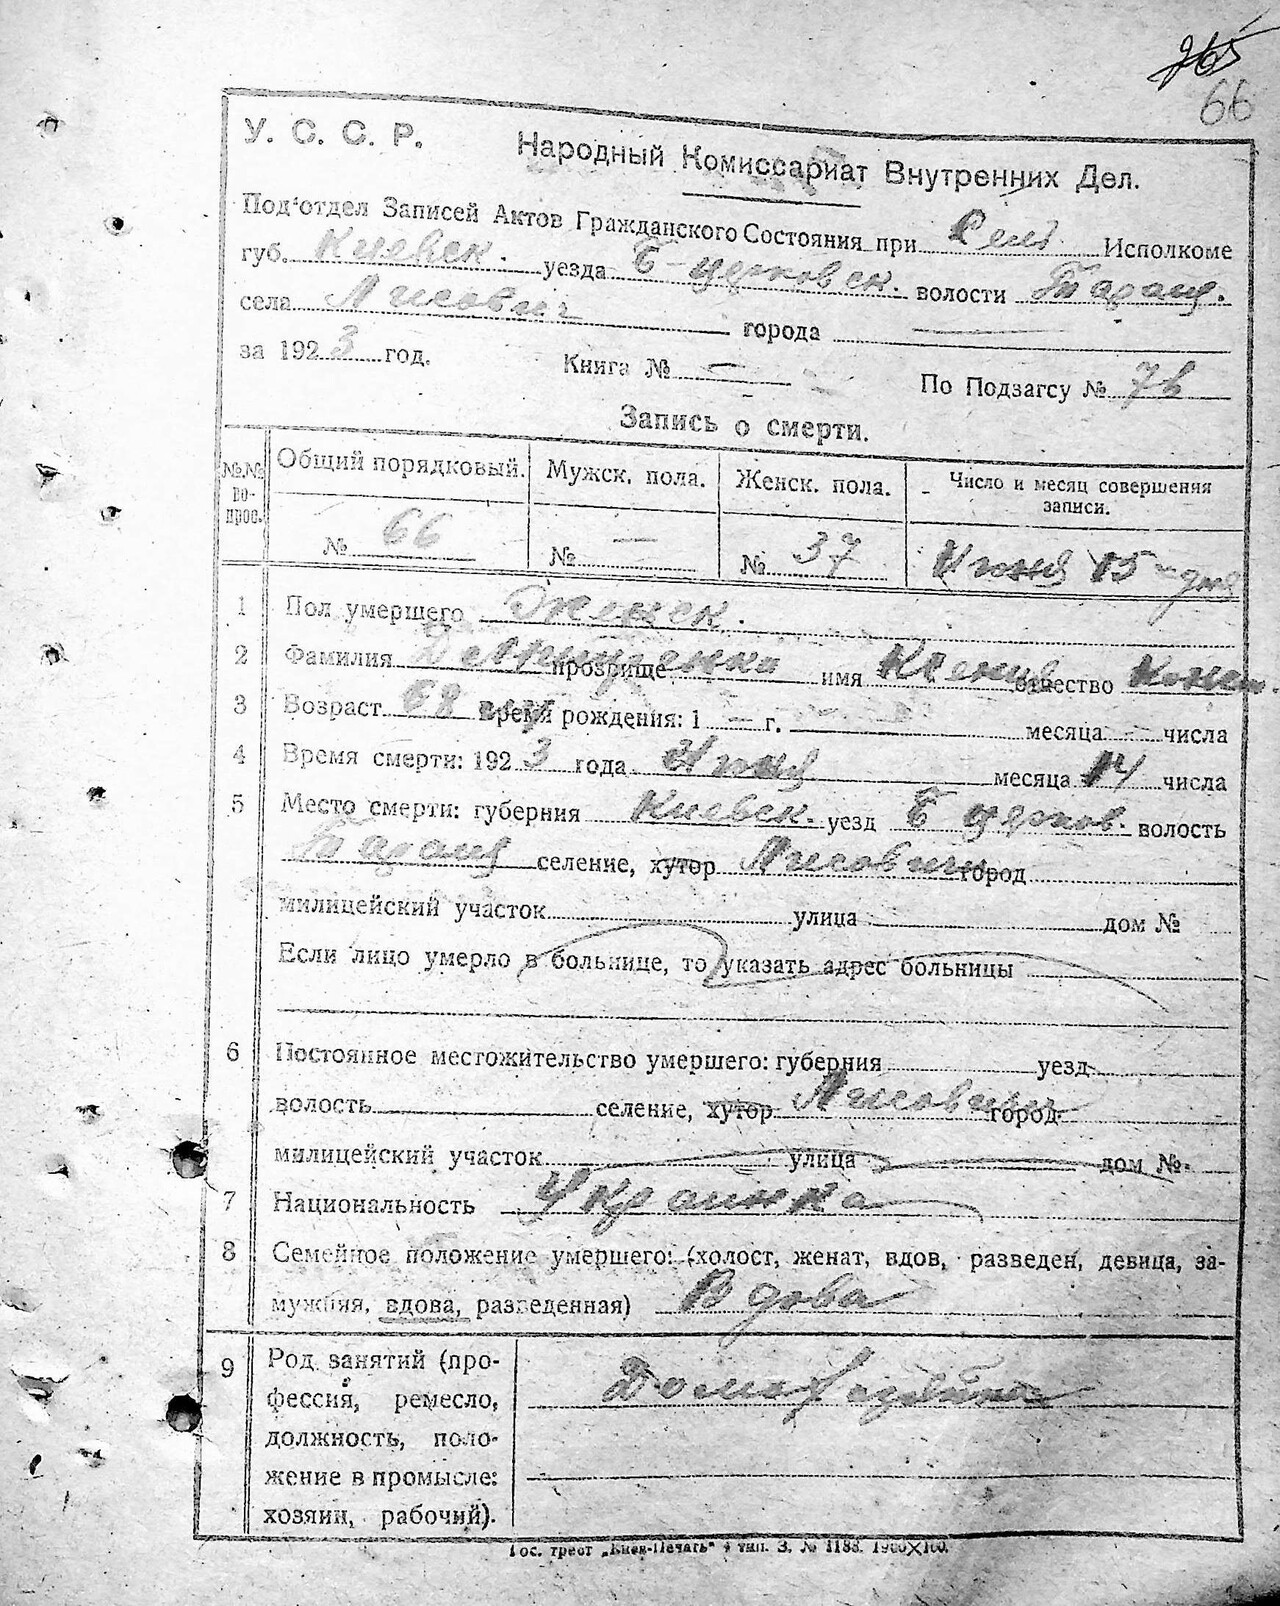 265
66
У. С. С. Р. Народный Комиссариат Внутренних Дел.
Под'отдел Записей Актов Гражданского Состояния при Исполкоме
губ. Киевск. уезда Б-церковск. волости Таращ.
села Лисович города
за 1923 год. Книга № — По Подзагсу №
Запись о смерти.
№№ вопрос. Общий порядковый. Мужск. пола. Женск. пола. Число и месяц совершения записи.
№ 66 № — № 37 Июня 15-дня
1 Пол умершего Женск.
2 Фамилия прозвище имя Ксения отчество
3 Возраст 68 время рождения: 1 — г. месяца — числа
4 Время смерти: 1923 года Июня месяца 14 числа
5 Место смерти: губерния Киевск. уезд Б церков. волость
Таращ селение, хутор Лисовичи город
милицейский участок улица дом №
Если лицо умерло в больнице, то указать адрес больницы
6 Постоянное местожительство умершего: губерния уезд
волость селение, хутор Лисовичи город
милицейский участок улица дом №
7 Национальность Украинка
8 Семейное положение умершего: (холост, женат, вдов, разведен, девица, за-
мужняя, вдова, разведенная) Вдова
9 Род занятий (про-
фессия, ремесло,
должность, поло-
жение в промысле:
хозяин, рабочий).
Гос. трест „Киев-Печать" 4 тип. З. № 1188. 1900×100.